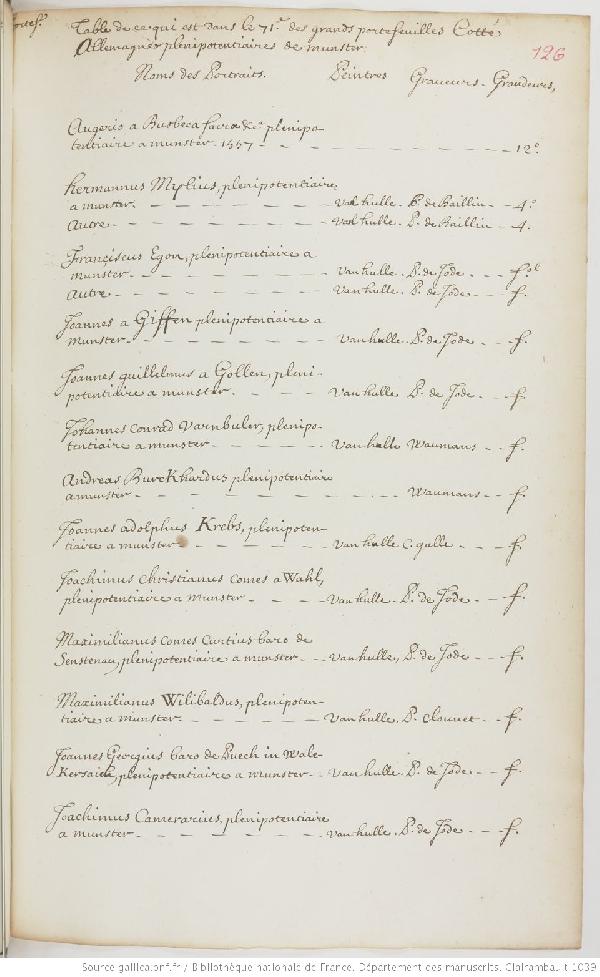 Table de ce qui est dans le 71.e des grands portefeuilles Cotté,
Allemagne plenipotentiaires de munster.
126
Noms des Portraits. Peintres Graveurs. Grandeurs,
Augerio a Busbeca sacra &c.a plenipo-
tentiaire a munster. 1557 - - - 12.o
Hermannus Mylius, plenipotentiaire
a munster. - - - van hulle. P. de Baillin - - 4.o
Autre - - - van hulle. P. de Baillin - 4.
Franciscus Egon, plenipotentiaire a
munster - - - van hulle. P. de Jode - - fol
Autre - - - van hulle. P. de Jode - - f.
Joannes a Giffen plenipotentiaire a
munster - - - van hulle. P. de Jode - - f.
Joannes guillelmus a Gollen, pleni-
potentiaire a munster. - - - van hulle P. de Jode - - f.
Johannes Conrad Varnbuler, plenipo-
tentiaire a munster - - - van hulle Waumans - - f.
Andreas Burckhardus plenipotentiaire
a munster - - - Waumans - - f.
Joannes adolphus Krebs, plenipoten-
tiaire a munster - - - van hulle C. galle - - f.
Joachimus Christianus Comes a Wahl,
plenipotentiaire a munster - - - van hulle. P. de Jode - - f.
Maximilianus comes Curtius baro de
Senstenau, plenipotentiaire a munster - - van hulle, P. de Jode - - f.
Maximilianus Wilibaldus, plenipoten-
tiaire a munster. - - - van hulle. P. Clouuet - - f.
Joannes Georgius baro de Puech in Wale-
Kersaich, plenipotentiaire a munster - - van hulle. P. de Jode - - f.
Joachimus Camerarius, plenipotentiaire
a munster - - - van hulle. P. de Jode - - f.
Source gallica.bnf.fr / Bibliothèque nationale de France. Département des manuscrits. Clairambault 1039